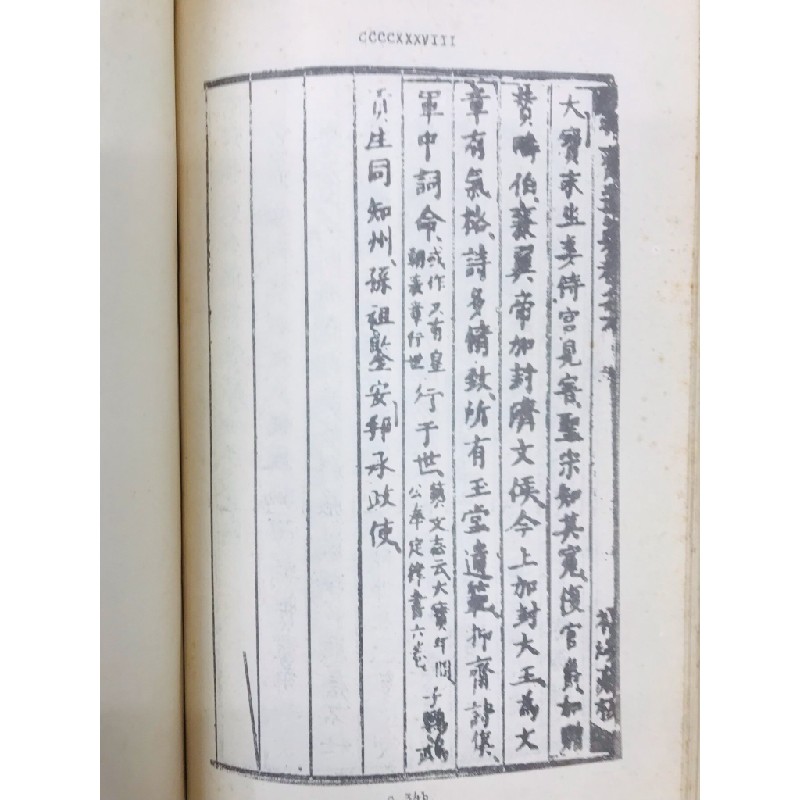 CCCCXXXVIII
大寶末坐妾侍宮見害聖宗知其冤復官爵加贈
贊時伯襄翼帝加封濟文侯今上加封大王為文
章有氣格詩多精致所有玉堂遺範抑齋詩集
軍中詞命或作又有皇朝表章行世行于世藝文志云大寶年間公奉定律書六卷子鸚鵡
員生同知州孫祖鑒安邦承政使